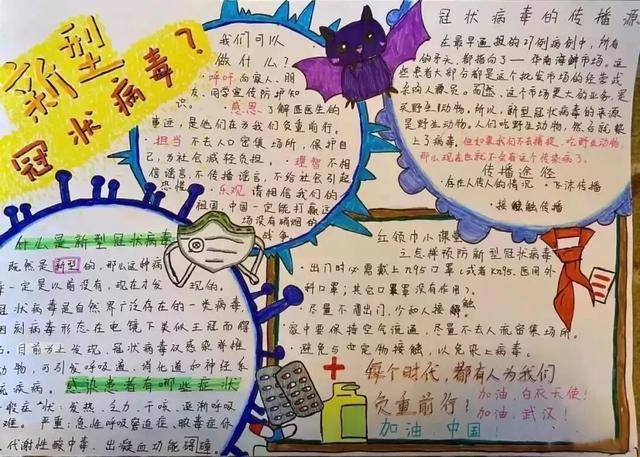 新型
冠状病毒?
我们可以
做什么?
·呼吁而家人、朋
友、同学宣传防护知
识、·感恩 了解医医生的
事迹,是他们在为我们负重前行。
·担当 不去人口密集场所,保护自
己,为社会减轻负担。·理智 不相
信谣言,不传播谣言,不给社会引起
恐慌 ·乐观 请相信我们的
祖国,中国一定能打赢这
场没有硝烟的
战争。
冠状病毒的传播源
在最早通报的27例病例中,所有
的矛头,都指向了——华南海鲜市场。这
些患者大部分都是这个批发市场的经营或
采购人员。而然,这个市场更大的业务,是
买野生动物,所以,新型冠状病毒的来源
是野生动物。人们吃野生动物,然后就染
上了病毒。但如果我们不去捕捉、吃野生动物,
那么现在也就不会有这个传染病了。
传播途径
·存在人传人的情况 ·飞沫传播
·接触触传播
什么是新型冠状病毒
既然是新型的,那么这种病
毒一定是以前没有,现在才发
现的。
冠状病毒是自然界广泛存在的一类病毒,
因别病毒形态在电镜下类似王冠而得
名。目前为止发现,冠状病毒仅感染脊椎
动物,可引发呼吸道、消化道和神经系
统疾病。感染患者有哪些症状
一般症状:发热、乏力、干咳、逐渐呼吸
难。严重:急性呼吸窘迫症、脓毒症休
代谢性酸中毒、出凝血功能碍障。
红领巾小课堂
之怎样预防新型冠状病毒
·出门时必需戴上n95口罩(或者KN95、医用外
科口罩;其它口罩没有作用)。
·尽量不遛出门,少和人接触
·家中要保持空气流通,尽量不去人流密集场所。
·避免与动物接触,以免染上病毒。
每个时代,都有人为我们
负重前行!
加油,白衣天使!
加油,武汉!
加油,中国!